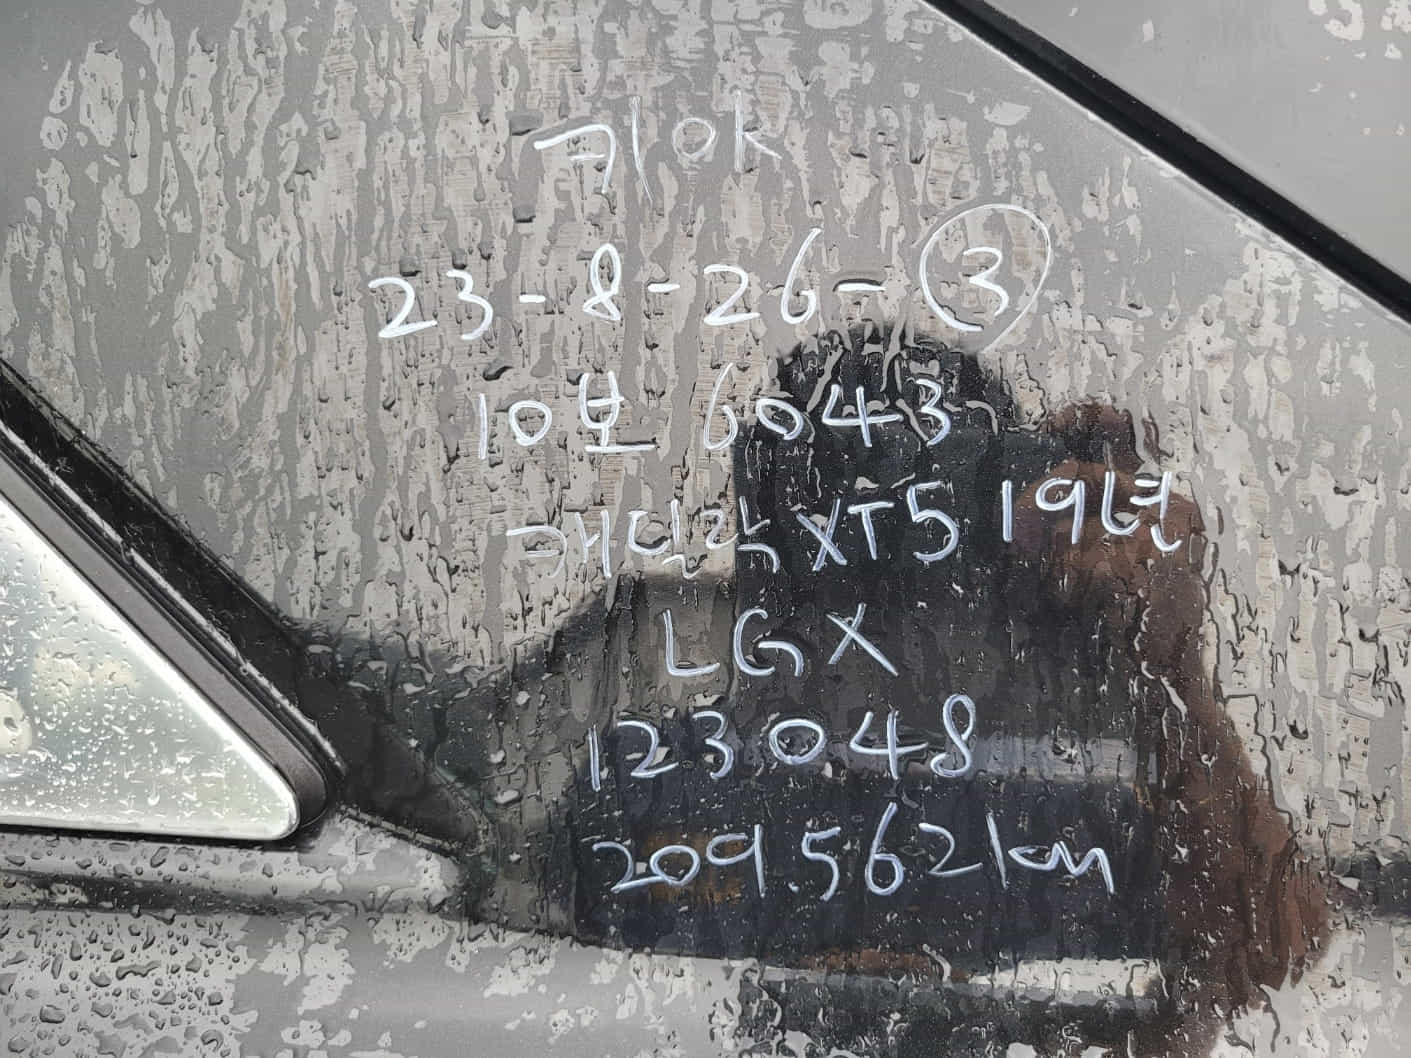 키ok
23-8-26-③
10보 6043
캐딜락 XT5 19년
LGX
123048
209.562km